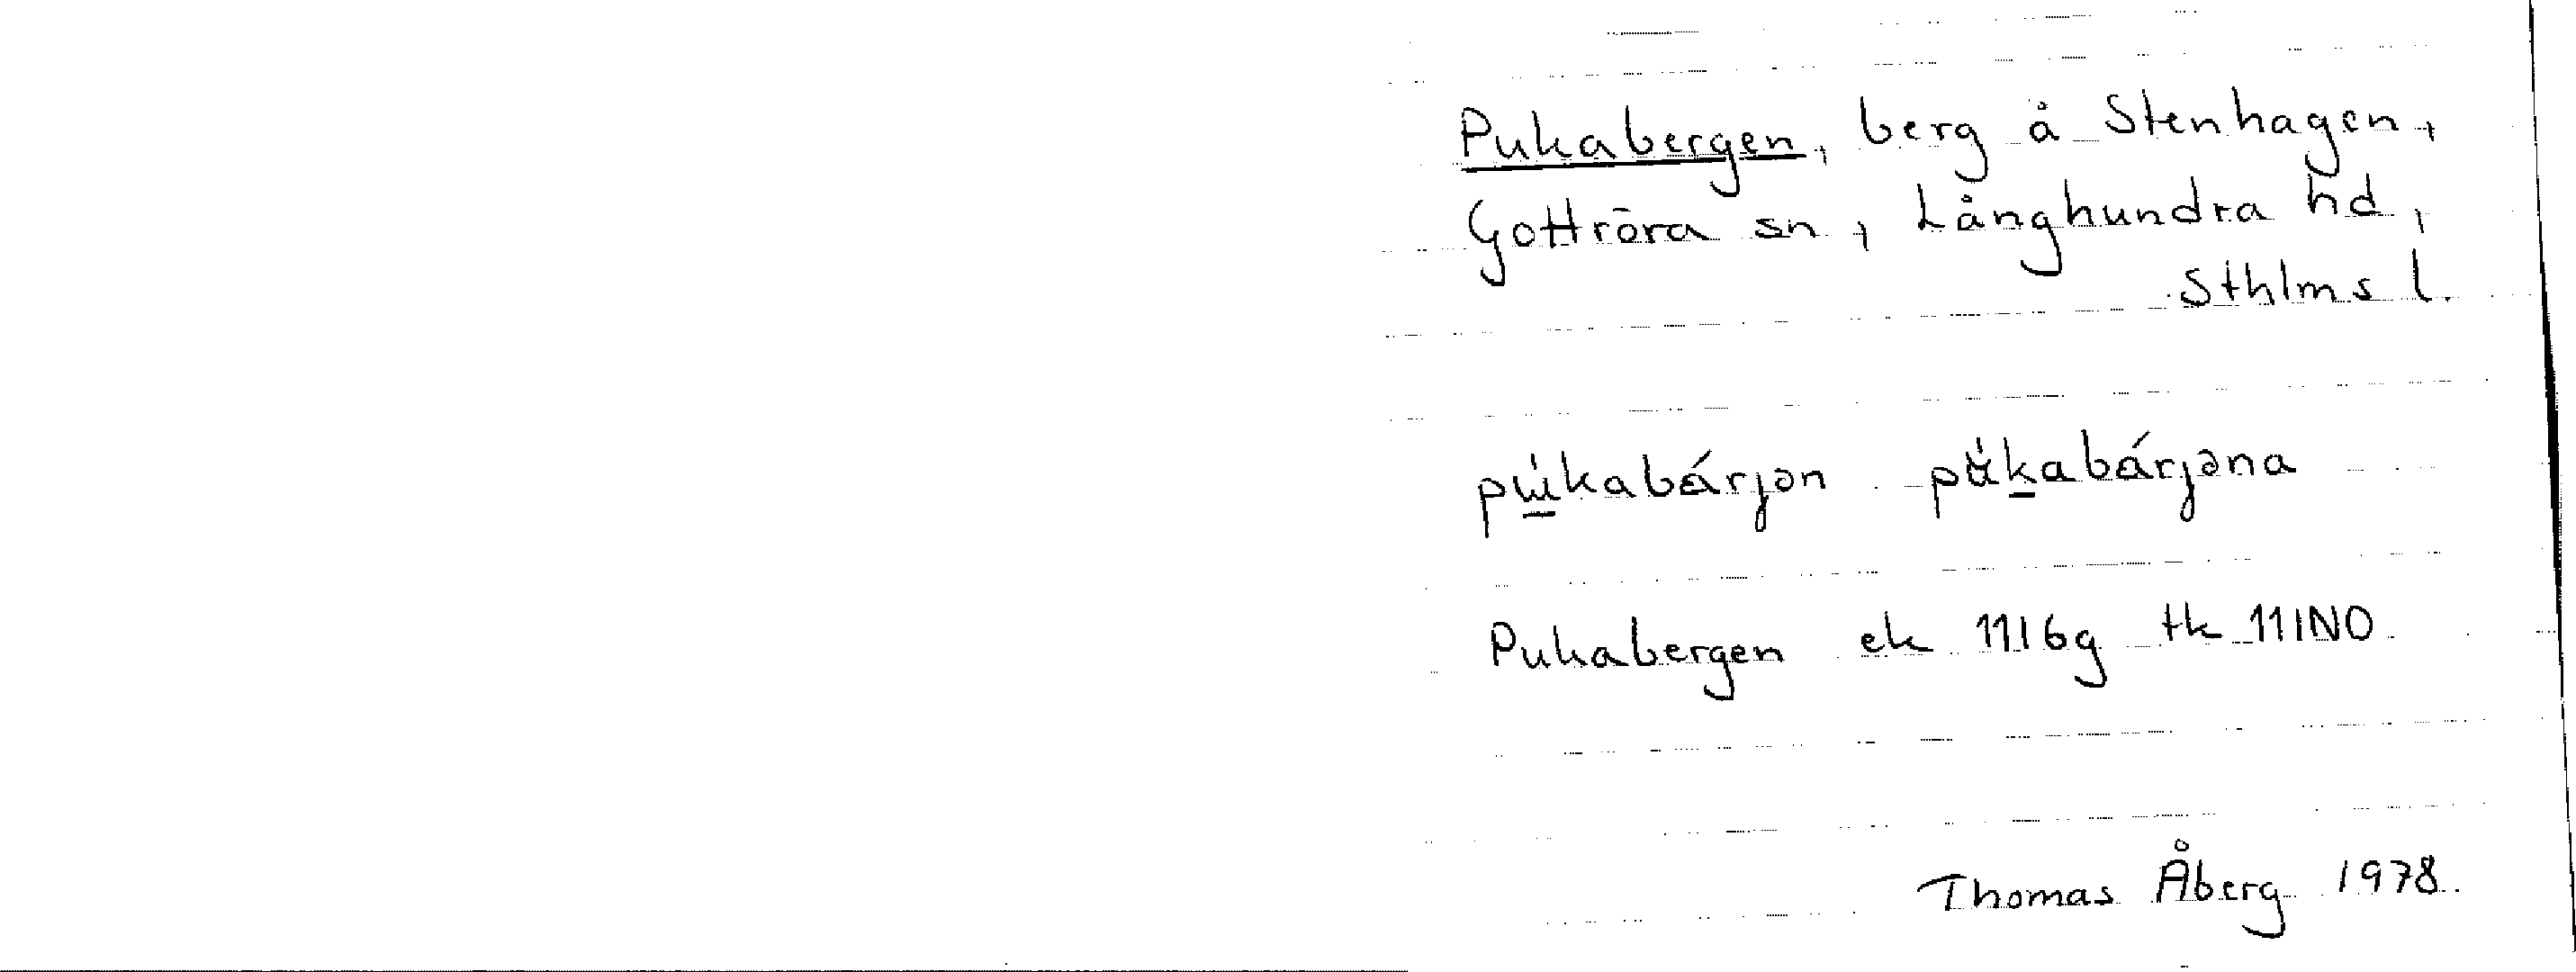 Pukabergen, berg å Stenhagen,
Gottröra sn, Långhundra hd,
Sthlms l.
pɯ̲́kabárjən pʉ́k̲abárjəna
Pukabergen ek 11I6g tk 11INO
Thomas Åberg 1978.